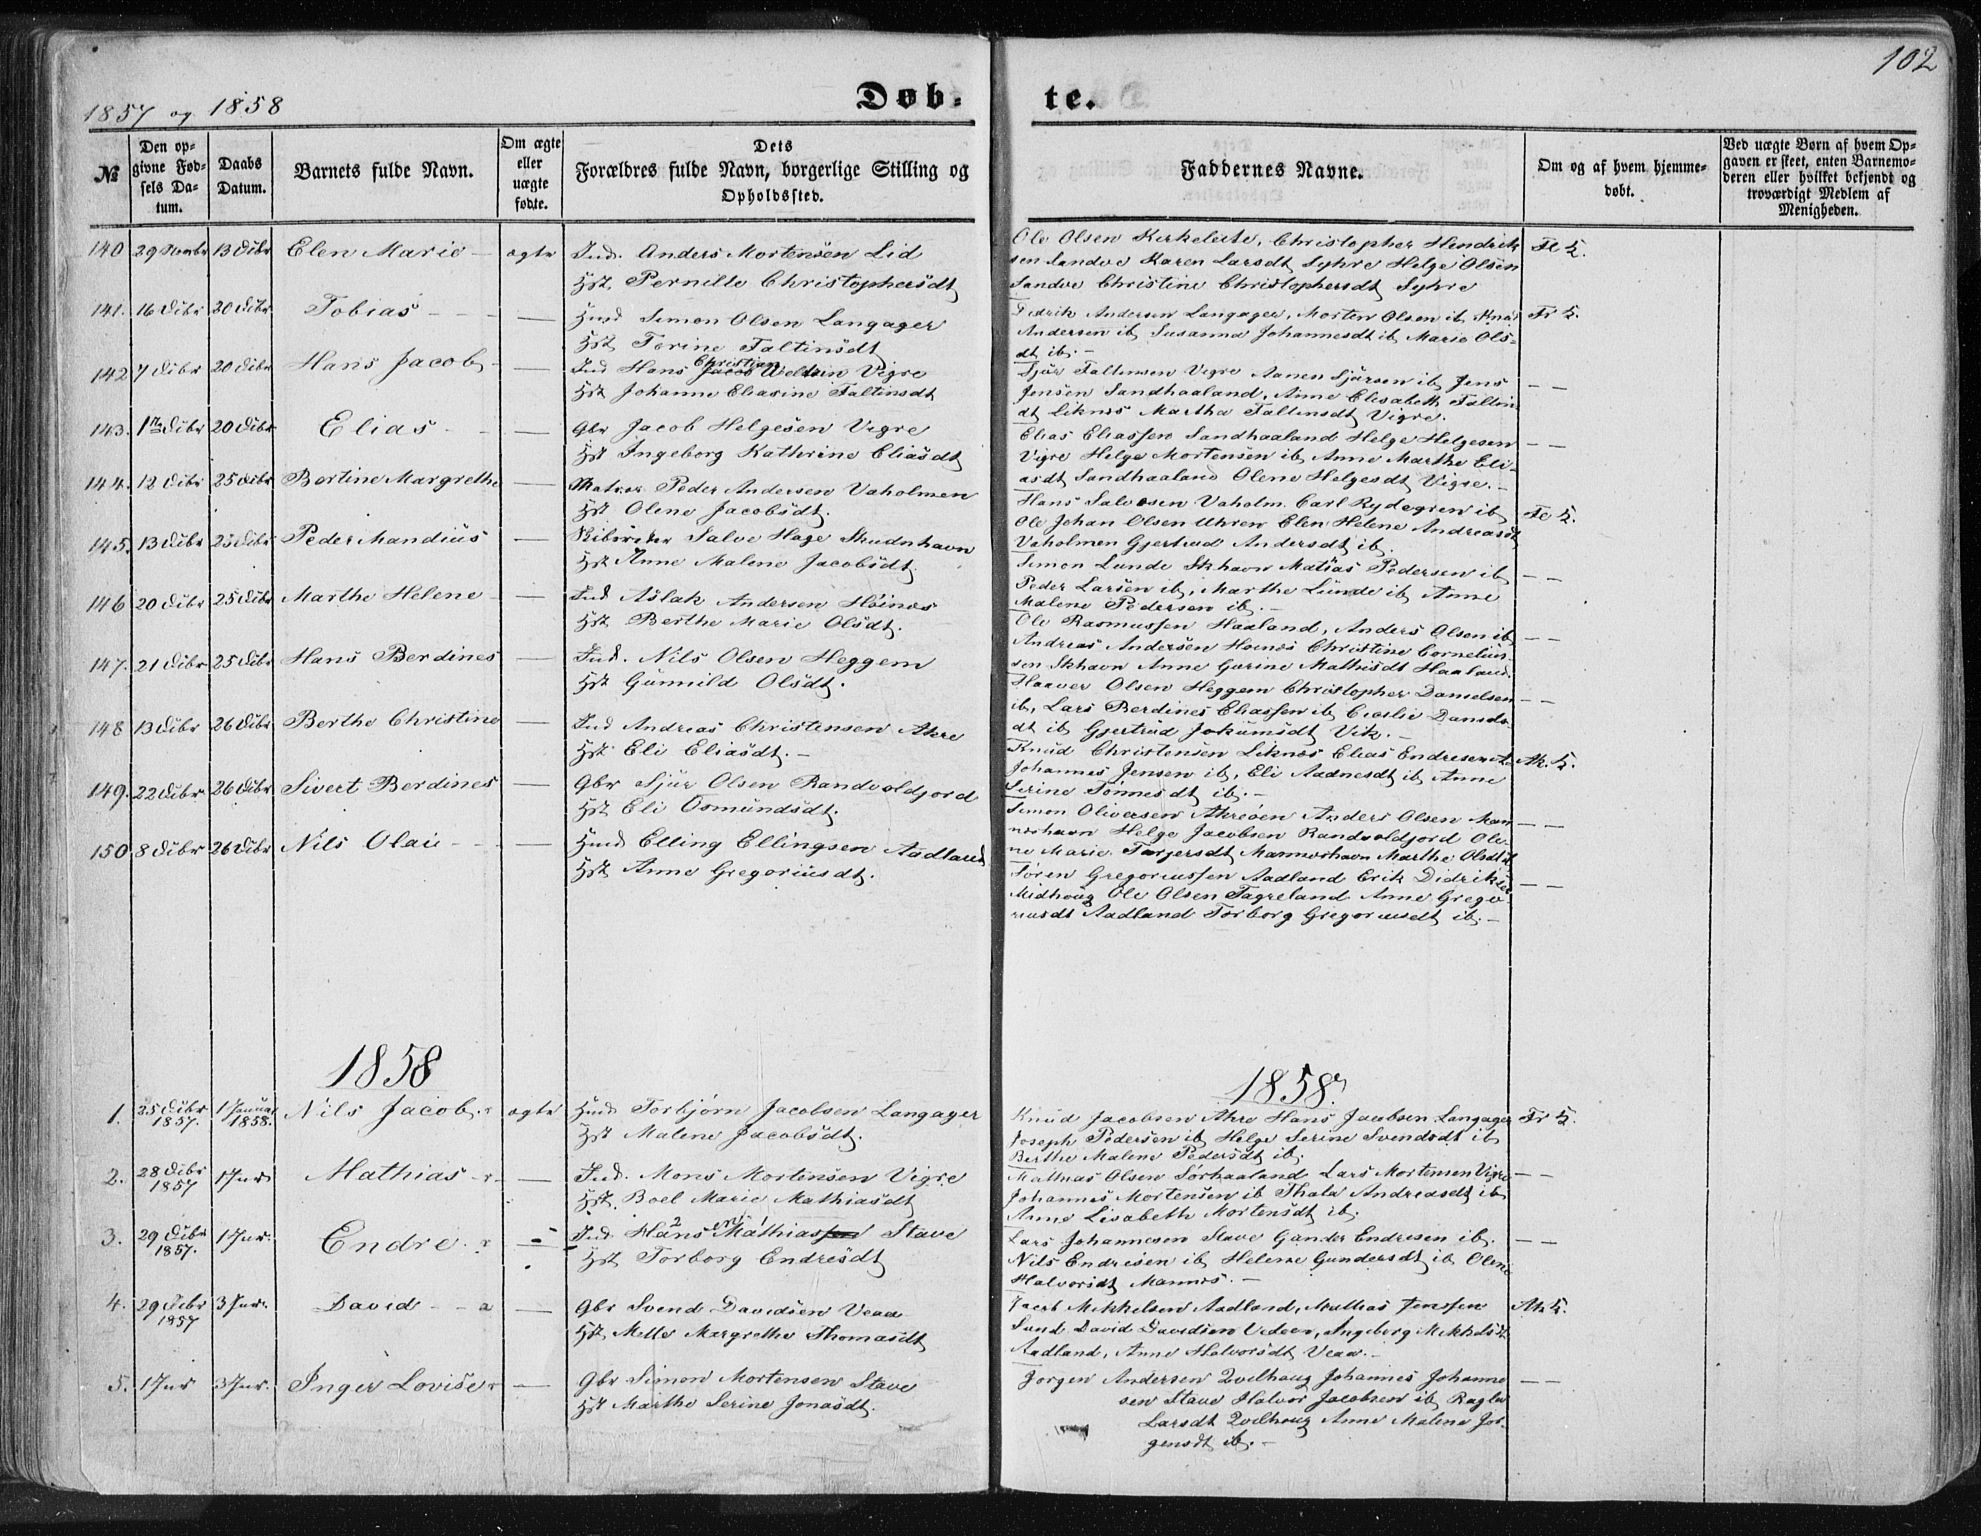 102
1857 og 1858
Døb-
te.
№
Den op-
givne Fød-
sels Da-
tum.
Daabs
Datum.
Barnets fulde Navn.
Om ægte
eller
uægte
fødte.
Dets
Forældres fulde Navn, borgerlige Stilling og
Opholdssted.
Faddernes Navne.
Om og af hvem hjemme-
døbt.
Ved uægte Børn af hvem Op-
gaven er skeet, enten Barnemo-
deren eller hvilket bekjendt og
troværdigt Medlem af
Menigheden.
140 29 Novbr 13 Dcbr Elen Marie - ægte Ind. Anders Mortensen Lid
Hst. Pernille Christophersdt
Ole Olsen Kirkeleite, Christopher Hendrik
sen Sandve Karen Larsdt Syhre Helge Olsen
Sandve Christine Christophersdt Syhre
141. 16 Dcbr 20 Dcbr Tobias - - - — Huusd Simon Olsen Langager
Hst Torine Taltinsdt
Fredrik Andersen Langager, Morten Olsen ib Knud
Andersen ib Susanna Johannesdt ib Marie Ols-
dt ib. -
142 7 Dcbr 20 Dcbr Hans Jacob - — Ind Hans Christian Jacob Weltzin Vigre
Hst Johanne Eliasine Faltinsdt
Sjur Faltinsen Vigre Aanen Sjursen ib Jens
Jensen Sandhaaland, Anne Elisabeth Faltin
dt Liknes Martha Faltinsdt Vigre.
143. 1ste Dcbr 20 Dcbr Elias - - — Gbr Jacob Helgesen Vigre
Hst Ingeborg Kathrine Eliasdt
Elias Eliassen Sandhaaland Helge Helgesen
Vigre Helge Mortensen ib Anne Marthe Eli-
asdt Sandhaaland Olene Helgesdt Vigre. -
144. 12 Dcbr 25 Dcbr Bertine Margrethe — Matros Peder Andersen Vaholmen
Hst Olene Jacobsdt.
Hans Salvesen Vaholm. Carl Rydegren ib
Ole Johan Olsen Uhren Elen Helene Andreasdt
Vaholmen Gjertrud Andersdt ib.
145. 13 Dcbr 25 Dcbr Peder Mandius — Salve Hage Skudnhavn
Hst Anne Malene Jacobsdt
Simon Lunde Skhavn Matias Pedersen ib
Peder Larsen ib, Marthe Lunde ib Anne
Malene Pedersen ib. -
146 20 Dcbr 25 Dcbr Marthe Helene — Ind Aslak Andersen Høines
Hst Berthe Marie Olsdt.
Ole Rasmussen Haaland, Anders Olsen ib
Andreas Andersen Hoenes Christine Cornelius-
sen Skhavn Anne Gurine Mathisdt Haaland.
147. 21 Dcbr 25 Dcbr Hans Berdines — Ind. Nils Olsen Heggem
Hst Gunnild Olsdt.
Haaver Olsen Heggem Christopher Danielsen
ib, Lars Berdines Eliassen ib Cecilie Daniels
dt ib Gjertrud Jokumsdt Vik. -
148 13 Dcbr 26 Dcbr Berthe Christine — Ind Andreas Christensen Akre
Hst Eli Eliasdt. -
Knud Christensen Liknes Elias Endresen
Johannes Jensen ib, Eli Aadnesdt ib Anne
Serine Tønnesdt ib. -
149. 22 Dcbr 26 Dcbr Sivert Berdines — Gbr Sjur Olsen Randvoldfjord
Hst Eli Osmundsdt.
Simon Oliversen Akreøen Anders Olsen Man
neshavn Helge Jacobsen Randvoldfjord Ole-
ne Marie Torjersdt Manneshavn Marthe Olsdt
150 8 Dcbr 26 Dcbr Nils Olai - - — Huusd Elling Ellingsen Aadland
Hst Anne Gregoriusdt.
Søren Gregoriussen Aadland Erik Didriksen
Midhoug Ole Olsen Fagreland Anne Grego-
riusdt Aadland Torborg Gregoriusdt ib. -
1858
1858.
1. 25 Dcbr 1857. 1 Januar 1858. Nils Jacob. ægte Huusd Torbjørn Jacobsen Langager
Hst Malene Jacobsdt.
Knud Jacobsen Akre Hans Jacobsen Langager
Joseph Pedersen ib Helge Serine Svendsdt ib
Berthe Malene Pedersdt ib.
2. 28 Dcbr 1857 1 Jnr Mathias — Ind. Mons Mortensen Vigre
Hst. Boel Marie Mathiasdt
Mathias Olsen Sørhaaland Lars Mortensen Vigre
Johannes Mortensen ib Thala Andreasdt ib
Anne Lisabeth Mortensdt ib.
3. 29 Dcbr 1857. 1 Jnr. Endre — Ind. Hans Mathiassen Stave
Hst Torborg Endresdt
Lars Johannesen Stave Gunder Endresen ib.
Nils Endresen ib Helene Gundersdt ib Olene
Halvorsdt Mannes. -
4. 29 Dcbr 1857 3 Jnr. David — Gbr Svend Davidsen Veaa
Hst. Mette Margrethe Thomasdt
Jacob Mikkelsen Aadland, Mathias Jensen
Sund David Davidsen Vedøen, Ingeborg Mikkelsdt
Aadland, Anne Halvorsdt Veaa. -
5. 1 Jnr 3 Jnr. Inger Lovise — Gbr Simon Mortensen Stave
Hst Marthe Serine Jonasdt.
Jørgen Andersen Qvelhoug Johannes Johanne
sen Stave Halvor Jacobsen ib Ragla
Larsdt Qvelhoug Anne Malene Jør-
gensdt ib. -